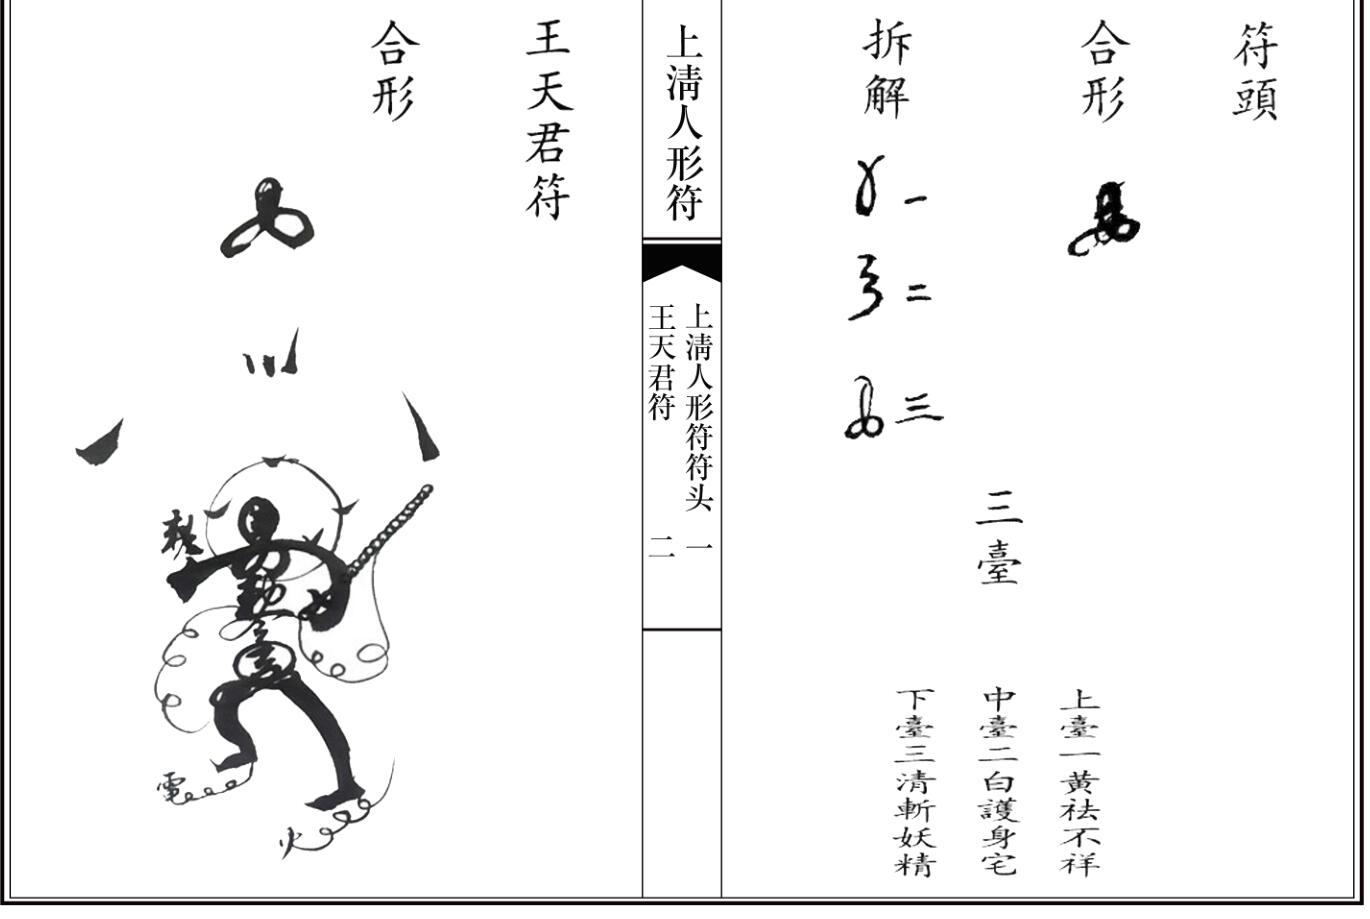 符頭
合形
拆解
一
二
三
三臺
上臺一黄祛不祥
中臺二白護身宅
下臺三清斬妖精
上淸人形符
上淸人形符符头 一
王天君符 二
王天君符
合形
電
火